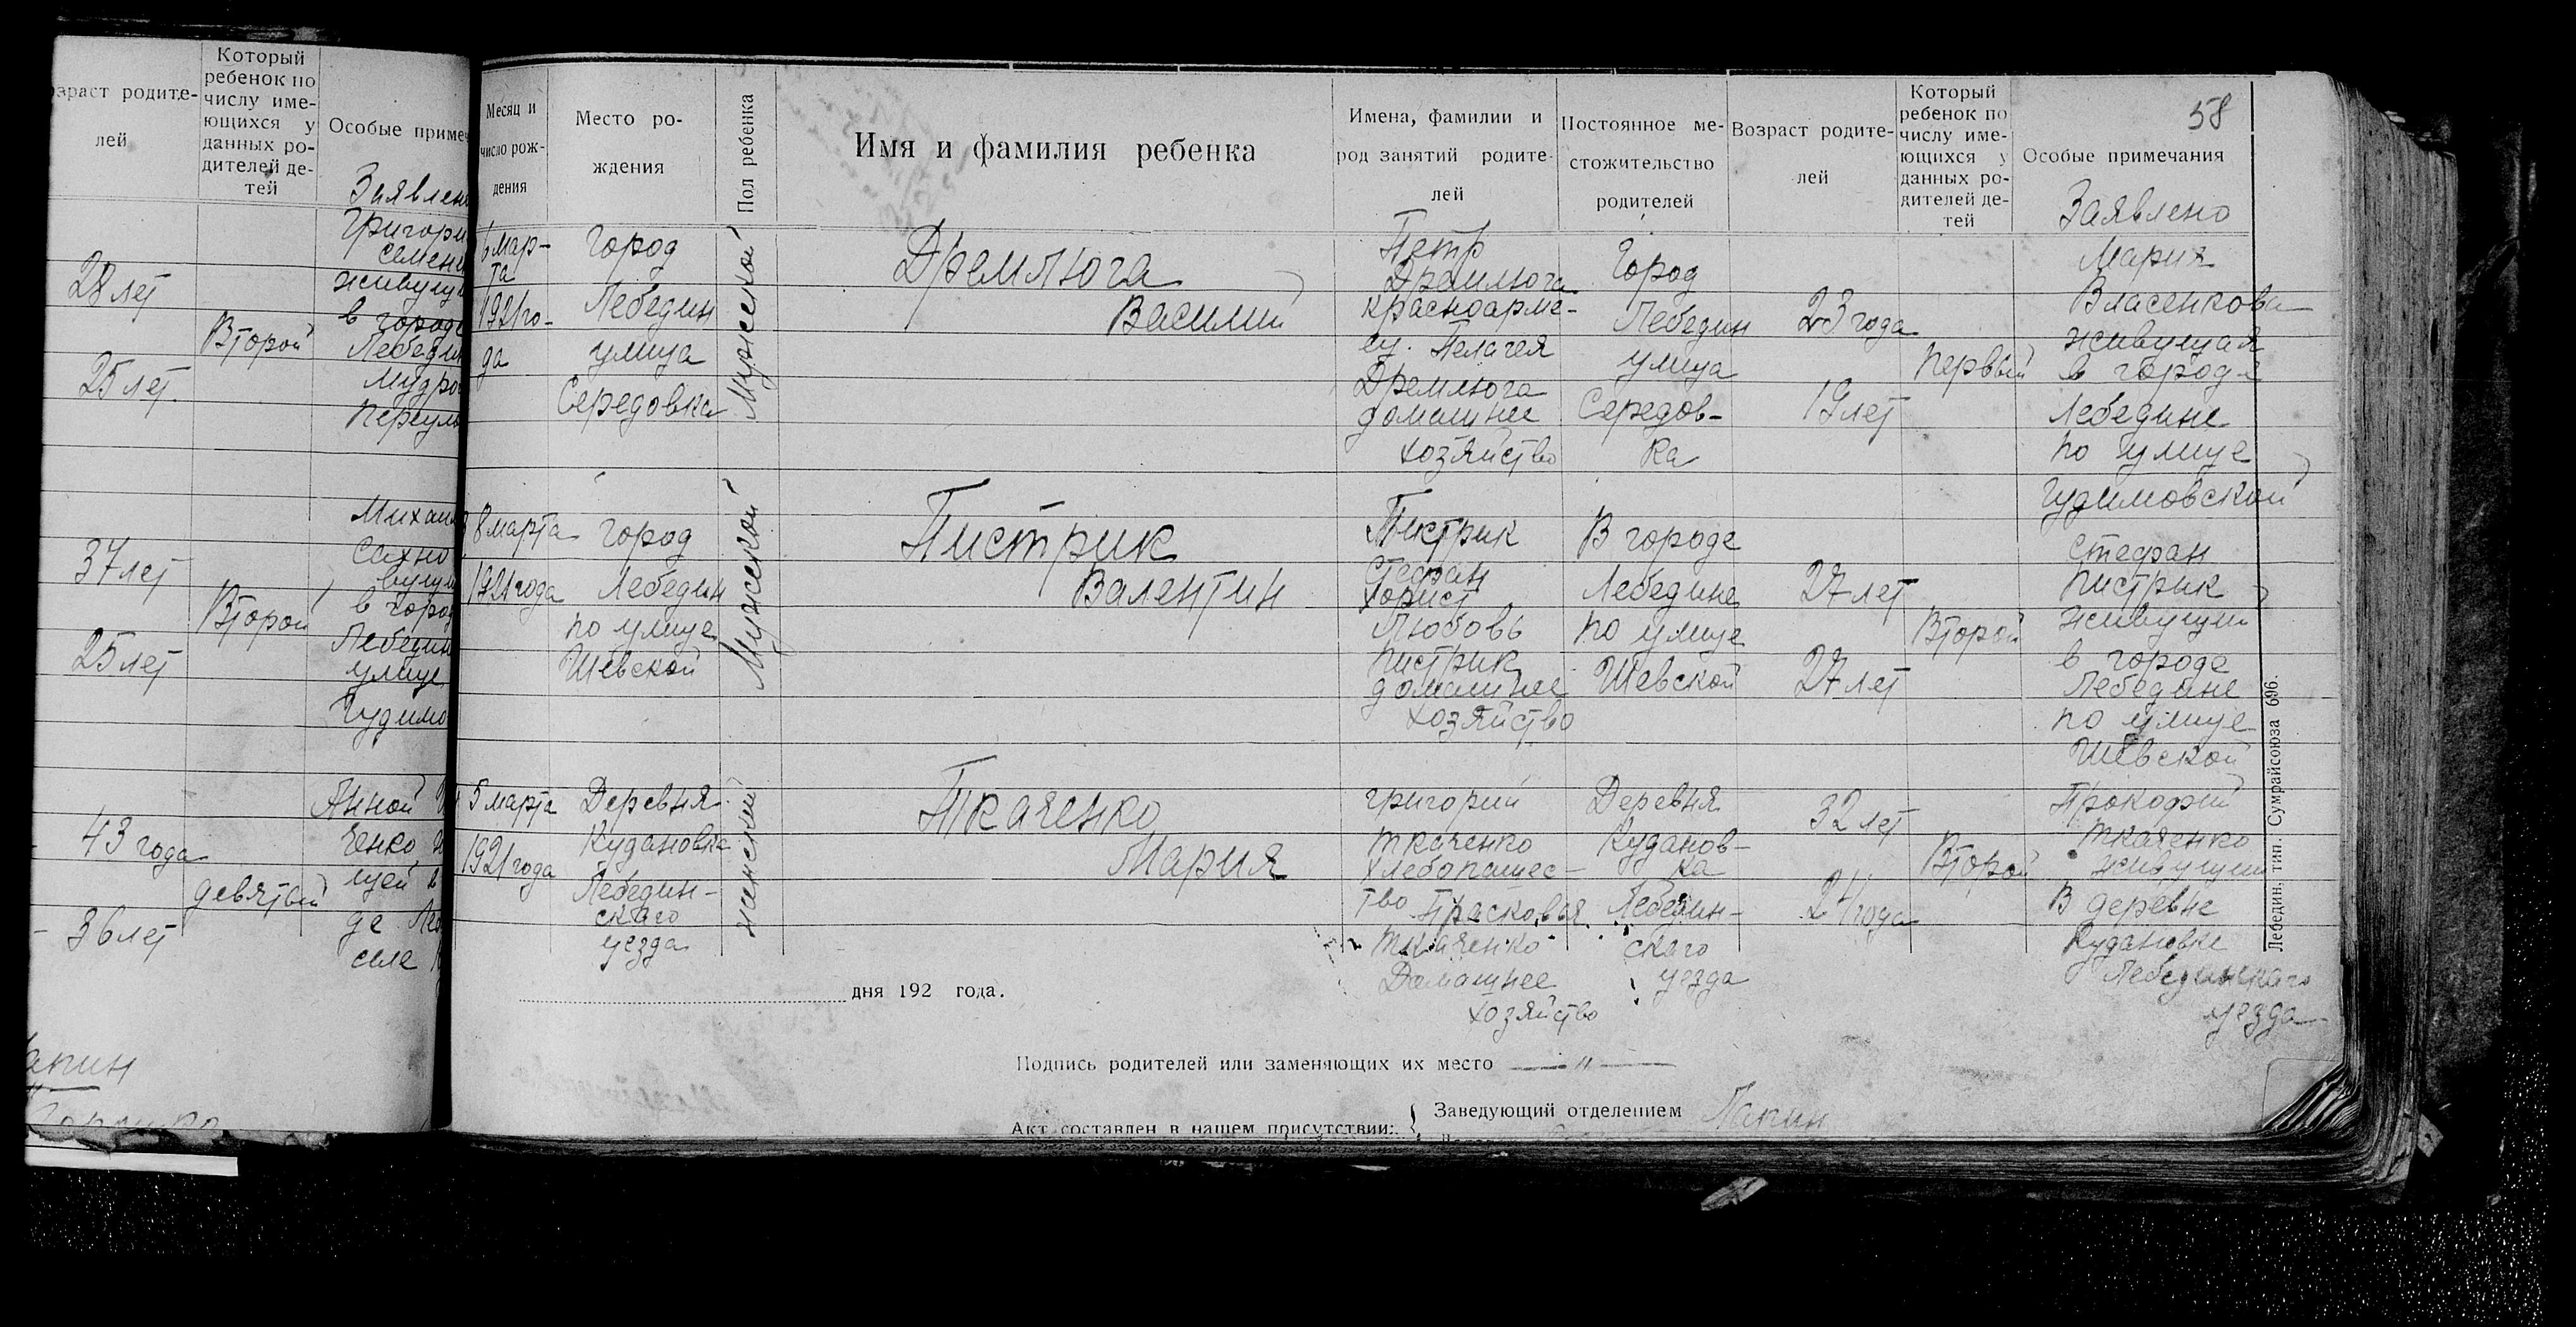 зраст родите-
лей
Который
ребенок по
числу име-
ющихся у
данных ро-
дителей де-
тей
Особые примеч
Заявлен
Григори
28 лет
живущи
в городе
Второй
Лебедин
25 лет.
Мудро
переул
Михаил
37 лет
Сахно
вущи
в город
Второй
Лебедин
25 лет
улице
Гудимо
Анной
43 года
ченко
щей в
девятый
де Ле
36 лет
селе
апин
Месяц и
число рож-
дения
Место ро-
ждения
Пол ребенка
Имя и фамилия ребенка
Имена, фамилии и
род занятий родите-
лей
Постоянное ме-
стожительство
родителей
Возраст родите-
лей
Который
ребенок по
числу име-
ющихся у
данных ро-
дителей де-
тей
58
Особые примечания
6 мар-
та
1921 го-
да
Город
Лебедин
улица
Середовка
Мужеской
Дремлюга
Василий
Петр
Дремлюга
красноарме-
ец. Пелагея
Дремлюга
домашнее
хозяйство
Город
Лебедин
улица
Середов-
ка
23 года
19 лет
первый
Заявлено
Мария
Власенкова
живущая
в городе
Лебедине
по улице
Гудимовской
8 марта
1921 года
город
Лебедин
по улице
Шевской
Мужеской
Пистрик
Валентин
Пистрик
Стефан
хорист
Любовь
Пистрик
домашнее
хозяйство
В городе
Лебедине
по улице
Шевской
27 лет
27 лет
Второй
Стефан
Пистрик
живущий
в городе
Лебедине
по улице
Шевской
5 марта
1921 года
Деревня
Кудановка
Лебедин-
скаго
уезда
женский
Ткаченко
Мария
Григорий
Ткаченко
хлебопашес-
тво Прасковья
Ткаченко
Домашнее
хозяйство
Деревня
Куданов-
ка
Лебедин-
скаго
уезда
32 лет
24 года
Второй
Прокофий
Ткаченко
живущий
В деревне
Кудановке
Лебединскаго
уезда
Лебедин, тип. Сумрайсоюза 696.
дня 192 года.
Подпись родителей или заменяющих их место — " —
Заведующий отделением Лапин
Акт составлен в нашем присутствии: